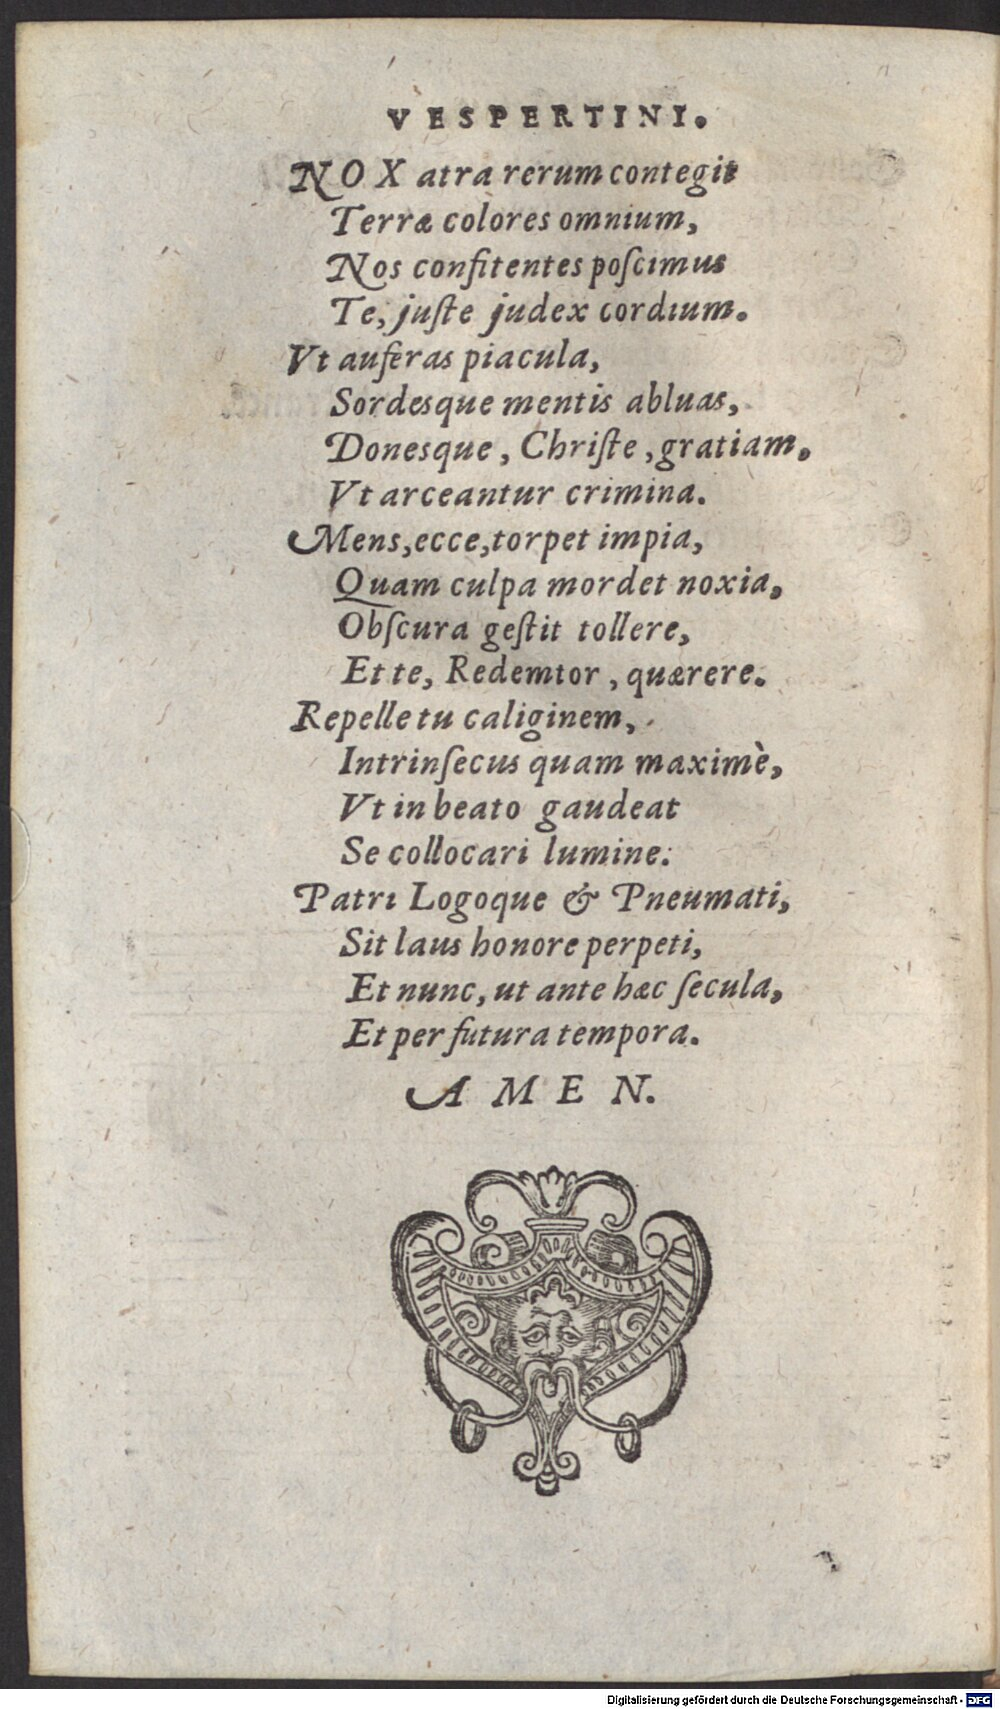 VESPERTINI.
NOX atra rerum contegit
Terræ colores omnium,
Nos confitentes poſcimus
Te, juſte judex cordium.
Vt auferas piacula,
Sordesque mentis abluas,
Donesque, Chriſte, gratiam,
Vt arceantur crimina.
Mens, ecce, torpet impia,
Quam culpa mordet noxia,
Obſcura geſtit tollere,
Et te, Redemtor, quærere.
Repelle tu caliginem,
Intrinſecus quam maximè,
Vt in beato gaudeat
Se collocari lumine.
Patri Logoque & Pneumati,
Sit laus honore perpeti,
Et nunc, ut ante hæc ſecula,
Et per futura tempora.
AMEN.
Digitalisierung gefördert durch die Deutsche Forschungsgemeinschaft - DFG